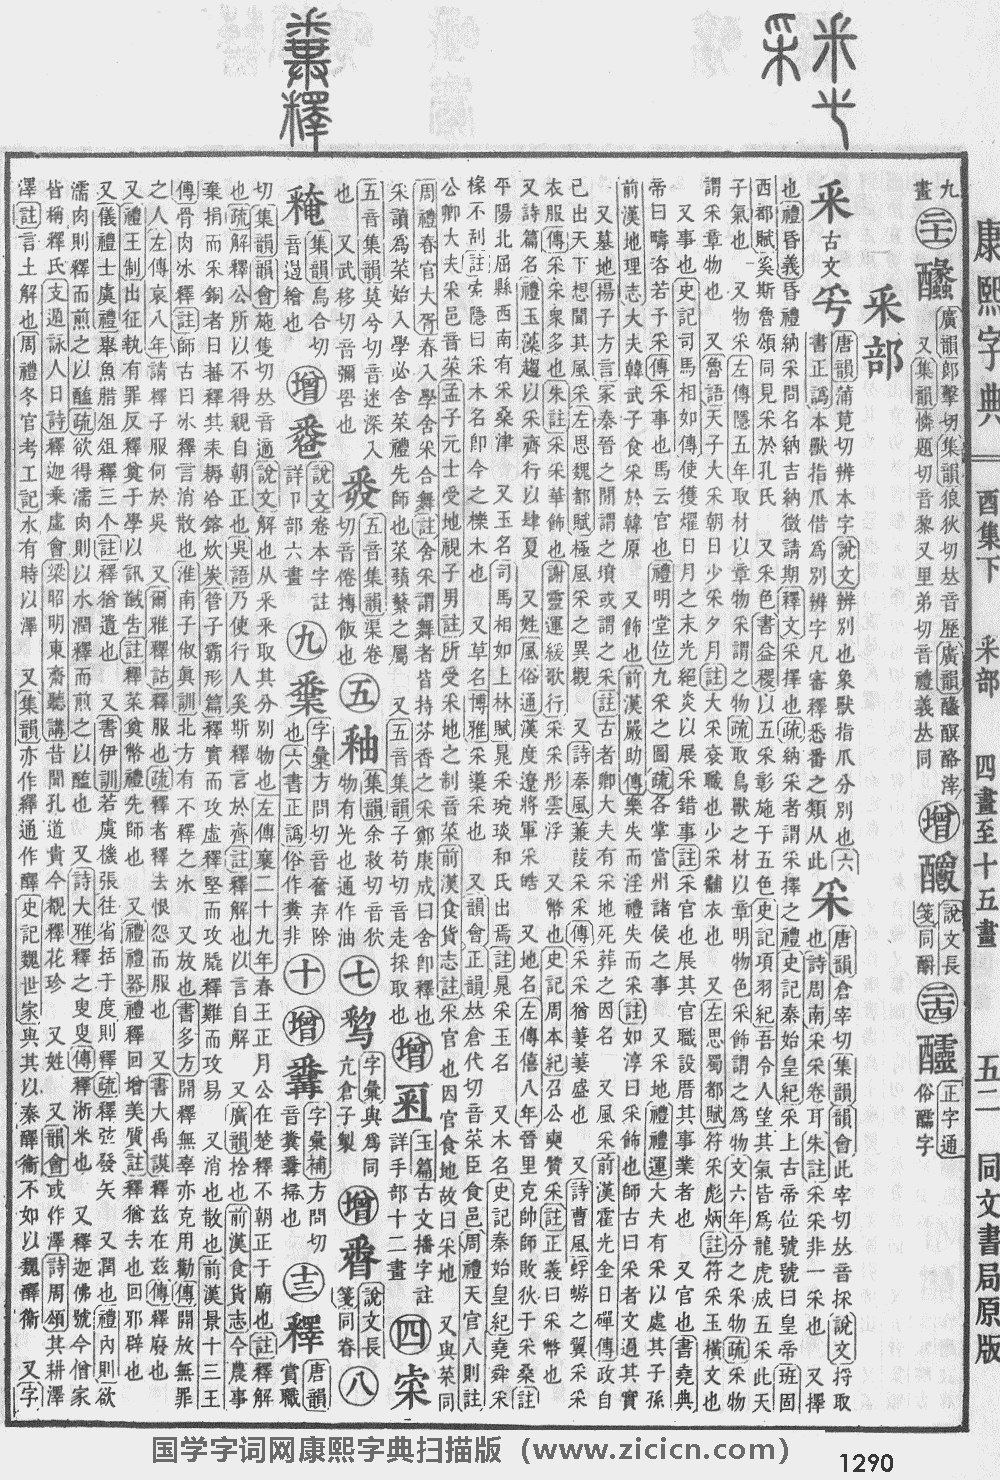 康熙字典
酉集下
釆部
四畫至十五畫
五二
同文書局原版
九畫
釆部
釆
古文
唐韻蒲莧切辨本字說文辨別也象獸指爪分別也六
書正譌本獸指爪借爲別辨字凡審釋悉番之類从此
采
唐韻倉宰切集韻韻會此宰切𠀤音採說文捋取
也詩周南采采卷耳朱註采采非一采也 又擇
也禮昏義昏禮納采問名納吉納徵請期釋文采擇也疏納采者謂采擇之禮史記秦始皇紀采上古帝位號號曰皇帝班固
西都賦奚斯魯頌同見采於孔氏 又采色書益稷以五采彰施于五色史記項羽紀吾令人望其氣皆爲龍虎成五采此天
子氣也 又物采左傳隱五年取材以章物采謂之物疏取鳥獸之材以章明物色采飾謂之爲物文六年分之采物疏采物
謂采章物也 又魯語天子大采朝日少采夕月註大采袞職也少采黼衣也 又左思蜀都賦符采彪炳註符采玉橫文也
又事也史記司馬相如傳使獲燿日月之末光絕炎以展采錯事註采官也展其官職設厝其事業者也 又官也書堯典
帝曰疇咨若予采傳采事也馬云官也禮明堂位九采之國疏各掌當州諸侯之事 又采地禮禮運大夫有采以處其子孫
前漢地理志大夫韓武子食采於韓原 又飾也前漢嚴助傳樂失而淫禮失而采註如淳曰采飾也師古曰采者文過其實
又墓地揚子方言冢秦晉之閒謂之墳或謂之采註古者卿大夫有采地死葬之因名 又風采前漢霍光金日磾傳政自
己出天下想聞其風采左思魏都賦極風采之異觀 又詩秦風蒹葭采采傳采采猶萋萋盛也 又詩曹風蜉蝣之翼采采
衣服傳采采衆多也朱註采采華飾也謝靈運緩歌行采采彤雲浮 又幣也史記周本紀召公奭贊采註正義曰采幣也
又詩篇名禮玉藻趨以采齊行以肆夏 又姓風俗通漢度遼將軍采皓 又地名左傳僖八年晉里克帥師敗狄于采桑註
平陽北屈縣西南有采桑津 又玉名司馬相如上林賦晁采琬琰和氏出焉註晁采玉名 又木名史記秦始皇紀堯舜采
椽不刮註索隱曰采木名卽今之櫟木也 又草名博雅采葉采也 又韻會正韻𠀤倉代切音菜臣食邑周禮天官八則註
公卿大夫采邑音菜孟子元士受地視子男註所受采地之制音菜前漢食貨志註采官也因官食地故曰采地 又與菜同
周禮春官大胥春入學舍采合舞註舍采謂舞者皆持芬香之采鄭康成曰舍卽釋也
采讀爲菜始入學必舍菜禮先師也菜蘋蘩之屬 又五音集韻子苟切音走採取也
四
五音集韻莫兮切音迷深入
也 又武移切音彌罟也
五音集韻渠卷
切音倦摶飯也
五
釉
集韻余救切音狖
物有光也通作油
七
字彙與爲同
亢倉子製
八
集韻烏合切
音遏繪也
說文卷本字註
詳卩部六畫
九
字彙方問切音奮弃除
也六書正譌俗作糞非
十
字彙補方問切
音糞糞掃也
釋
唐韻賞職
切集韻韻會施隻切𠀤音適說文解也从釆釆取其分別物也左傳襄二十九年春王正月公在楚釋不朝正于廟也註釋解
也疏解釋公所以不得親自朝正也吳語乃使行人奚斯釋言於齊註釋解也以言自解 又廣韻捨也前漢食貨志今農事
棄捐而采銅者日蕃釋其耒耨冶鎔炊炭管子霸形篇釋實而攻虛釋堅而攻膬釋難而攻易 又消也散也前漢景十三王
傳骨肉冰釋註師古曰冰釋言消散也淮南子俶眞訓北方有不釋之冰 又放也書多方開釋無辜亦克用勸傳開放無罪
之人左傳哀八年請釋子服何於吳 又爾雅釋詁釋服也疏釋者釋去恨怨而服也 又書大禹謨釋茲在茲傳釋廢也
又禮王制出征執有罪反釋奠于學以訊馘告註釋菜奠幣禮先師也 又禮禮器禮釋回增美質註釋猶去也回邪辟也
又儀禮士虞禮舉魚腊俎俎釋三个註釋猶遺也 又書伊訓若虞機張往省括于度則釋疏釋弦發矢 又潤也禮內則欲
濡肉則釋而煎之以醢疏欲得濡肉則以水潤釋而煎之以醢也 又詩大雅釋之叟叟傳釋淅米也 又釋迦佛號今僧家
皆稱釋氏支遁詠人日詩釋迦乘虛會梁昭明東齋聽講昔聞孔道貴今覩釋花珍 又姓 又韻會或作澤詩周頌其耕澤
澤註言土解也周禮冬官考工記水有時以澤 又集韻亦作釋通作醳史記魏世家與其以秦醳衞不如以魏醳衞 又字
国学字词网康熙字典扫描版（www.zicicn.com）
1290